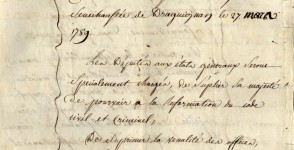 Senechaussée de Draguignan 27 mars
1789
Les Députés aux états generaux seront
spécialement chargés, de supplier sa majesté
de pourvoir a la reformation du code
civil et criminel;
De supprimer la vénalité des offices,